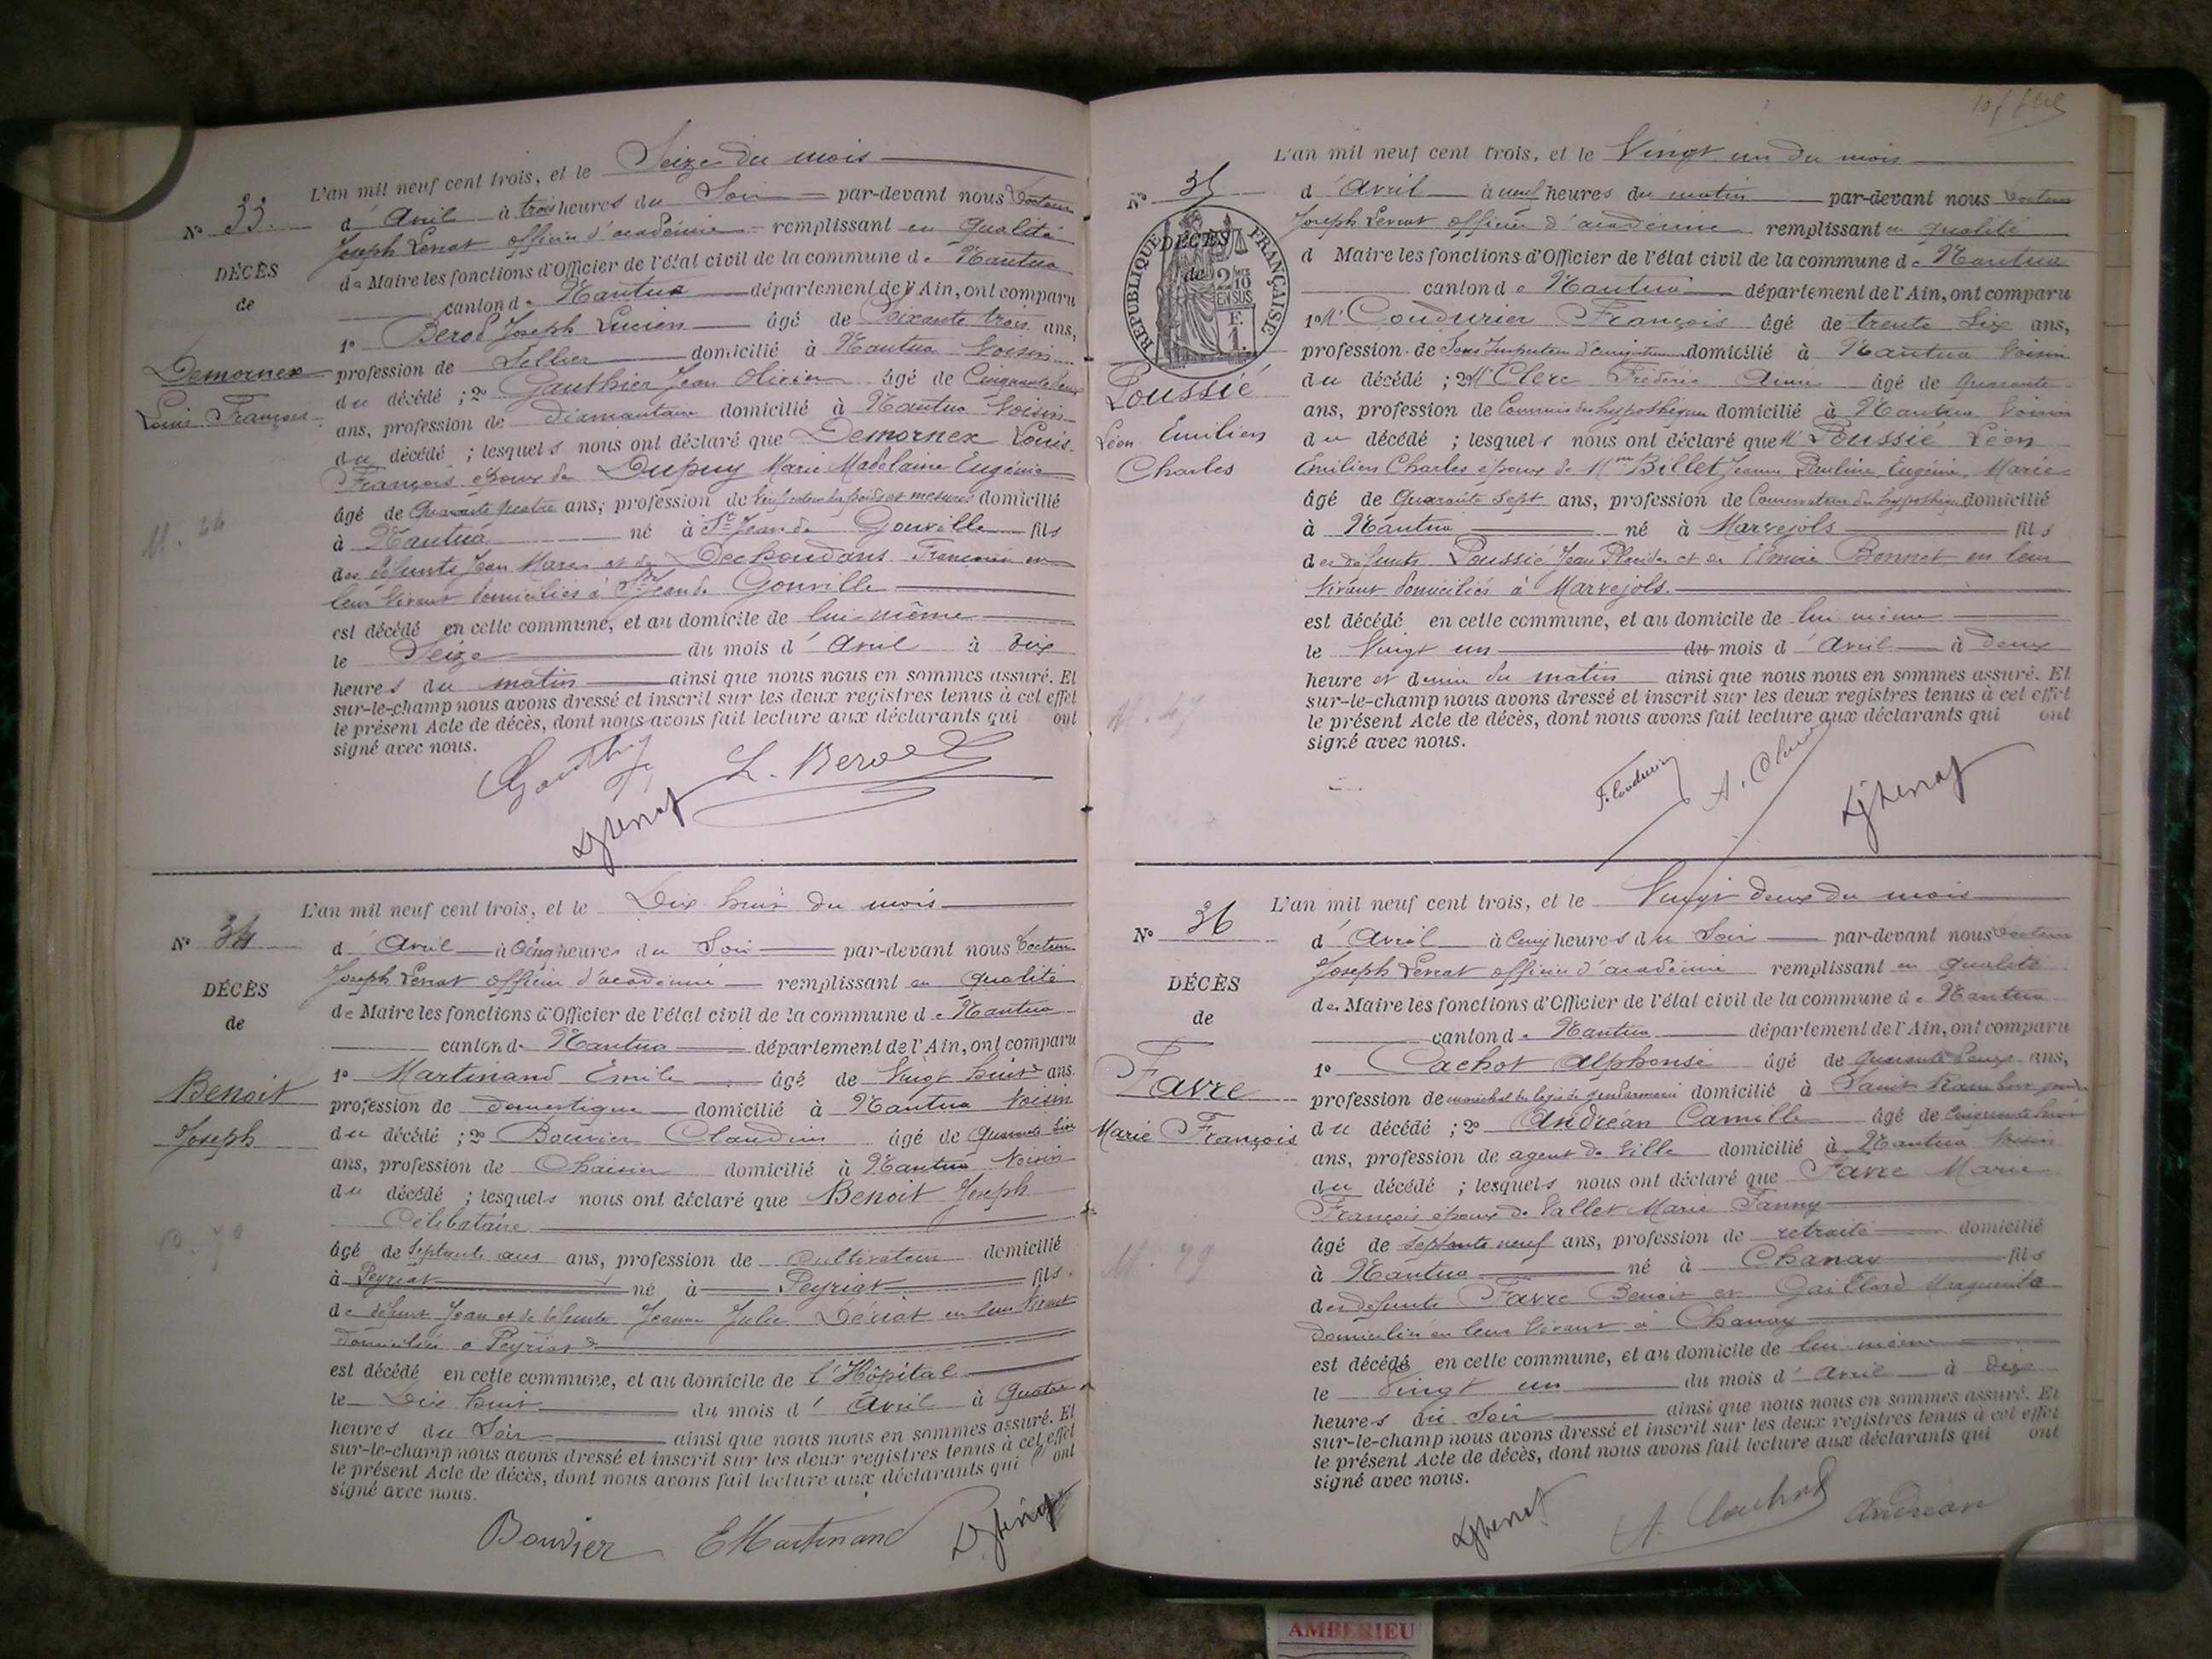 L'an mil neuf cent trois, et le Seize du mois
N° 33.
d'Avril à trois heures du Soir par-devant nous Docteur
Joseph Lenat officier d'académie remplissant en qualité
DÉCÈS
de Maire les fonctions d'Officier de l'état civil de la commune de Nantua
de
canton de Nantua département de l'Ain, ont comparu
1° Berod Joseph Lucien âgé de Soixante trois ans,
Demornex
profession de Sellier domicilié à Nantua Voisin
Louis François
du décédé ; 2° Gauthier Jean Olivier âgé de Cinquante deux
ans, profession de diamantaire domicilié à Nantua Voisin
du décédé ; lesquels nous ont déclaré que Demornex Louis
François époux de Dupuy Marie Madelaine Eugénie
âgé de Quarante quatre ans, profession de Vérificateur des poids et mesures domicilié
M. 44
à Nantua né à St Jean de Gonville fils
des défunts Jean Marie et de Dechoudans Françoise en
leur vivant domiciliés à St Jean de Gonville
est décédé en cette commune, et au domicile de lui-même
le Seize du mois d'Avril à dix
heures du matin ainsi que nous nous en sommes assuré. Et
sur-le-champ nous avons dressé et inscrit sur les deux registres tenus à cet effet
le présent Acte de décès, dont nous avons fait lecture aux déclarants qui ont
signé avec nous.
L. Berod
L'an mil neuf cent trois, et le Dix huit du mois
N° 34
d'Avril à Cinq heures du Soir par-devant nous Docteur
Joseph Lenat officier d'académie remplissant en qualité
DÉCÈS
de Maire les fonctions d'Officier de l'état civil de la commune de Nantua
de
canton de Nantua département de l'Ain, ont comparu
1° Martinand Emile âgé de Vingt huit ans.
Benoit
profession de domestique domicilié à Nantua Voisin
Joseph
du décédé ; 2° Bouvier Claudius âgé de Quarante Six
ans, profession de Chaisier domicilié à Nantua Voisin
du décédé ; lesquels nous ont déclaré que Benoit Joseph
Célibataire
âgé de Septante ans ans, profession de Cultivateur domicilié
à Peyriat né à Peyriat fils
de défunt Jean et de défunte Jeanne Julie Dériat en leur vivant
domiciliés à Peyriat
est décédé en cette commune, et au domicile de l'Hôpital
le Dix huit du mois d'Avril à Quatre
heures du Soir ainsi que nous nous en sommes assuré. Et
sur-le-champ nous avons dressé et inscrit sur les deux registres tenus à cet effet
le présent Acte de décès, dont nous avons fait lecture aux déclarants qui ont
signé avec nous.
Bouvier EMartinand
L'an mil neuf cent trois, et le Vingt un du mois
N° 35
d'Avril à neuf heures du matin par-devant nous Docteur
Joseph Lenat officier d'académie remplissant en qualité
DÉCÈS
de
REPUBLIQUE FRANÇAISE
2/10 EN SUS
F. 1.
d Maire les fonctions d'Officier de l'état civil de la commune de Nantua
canton de Nantua département de l'Ain, ont comparu
1° Mr Coudurier François âgé de trente Six ans,
profession de Sous Inspecteur d'enregistrement domicilié à Nantua Voisin
Poussié
du décédé ; 2° Mr Clerc Frédéric Aimé âgé de Quarante
ans, profession de Commis des hypothèques domicilié à Nantua Voisin
Léon Emilien
du décédé ; lesquels nous ont déclaré que Mr Poussié Léon
Charles
Emilien Charles époux de Mme Billet Jeanne Pauline Eugénie Marie
âgé de Quarante Sept ans, profession de Conservateur des hypothèques domicilié
à Nantua né à Marvejols fils
des défunts Poussié Jean Placide et de Emoie Bonnet en leur
Vivant domiciliés à Marvejols.
est décédé en cette commune, et au domicile de lui même
le Vingt un du mois d'Avril à deux
heure et demie du matin ainsi que nous nous en sommes assuré. Et
sur-le-champ nous avons dressé et inscrit sur les deux registres tenus à cet effet
M. 47
le présent Acte de décès, dont nous avons fait lecture aux déclarants qui ont
signé avec nous.
F. Coudurier
L'an mil neuf cent trois, et le Vingt deux du mois
N° 36
d'Avril à Cinq heures du Soir par-devant nous Docteur
Joseph Lenat officier d'académie remplissant en qualité
DÉCÈS
de Maire les fonctions d'Officier de l'état civil de la commune de Nantua
de
canton de Nantua département de l'Ain, ont comparu
1° Cachot Alphonse âgé de Quarante deux ans,
Favre
profession de maréchal des logis de gendarmerie domicilié à Saint Rambert
Marie François
du décédé ; 2° Andréan Camille âgé de Cinquante huit
ans, profession de agent de Ville domicilié à Nantua Voisin
du décédé ; lesquels nous ont déclaré que Favre Marie
François époux de Vallet Marie Fanny
âgé de septante neuf ans, profession de retraité domicilié
M. 79
à Nantua né à Chanay fils
des défunts Favre Benoit et Gaillard Marguerite
domiciliés en leur Vivant à Chanay
est décédé en cette commune, et au domicile de lui même
le Vingt un du mois d'Avril à dix
heures du Soir ainsi que nous nous en sommes assuré. Et
sur-le-champ nous avons dressé et inscrit sur les deux registres tenus à cet effet
le présent Acte de décès, dont nous avons fait lecture aux déclarants qui ont
signé avec nous.
A. Cachot Andréan
AMBERIEU